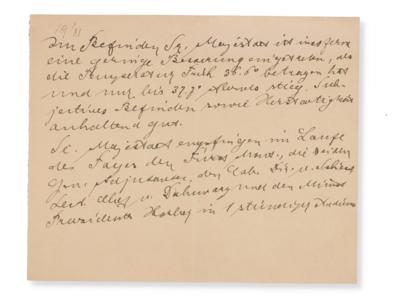 19/XI
Im Befinden Sr. Majestät ist insofern
eine geringe Besserung eingetreten, als
die Temperatur Früh 36.6 betragen hat
und nur bis 37.7 stieg. Sub-
jectives Befinden sowie Herztätigkeit
anhaltend gut.
Se. Majestät empfingen im Laufe
des Tages den Fürst Mont., die beiden
Gen. Adjutanten, den Cab. Dir. v. Schiessl
und den Minist
Präsidenten in 1 stündiger Audienz